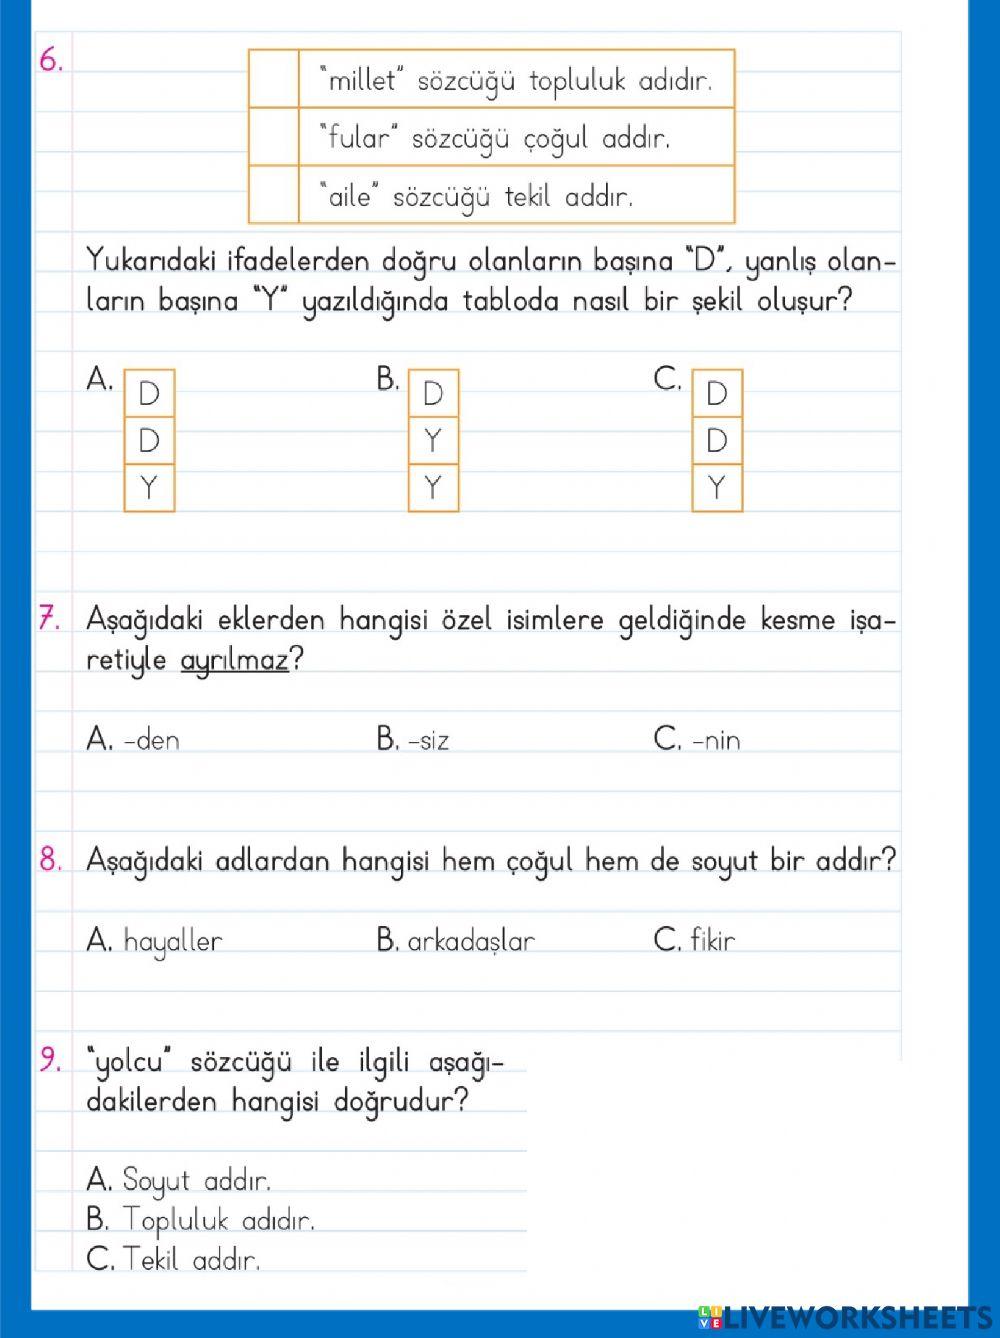 6.
"millet" sözcüğü topluluk adıdır.
"fular" sözcüğü çoğul addır.
"aile" sözcüğü tekil addır.
Yukarıdaki ifadelerden doğru olanların başına "D", yanlış olan-
ların başına "Y" yazıldığında tabloda nasıl bir şekil oluşur?
A. B. C.
D D D
D Y D
Y Y Y
7. Aşağıdaki eklerden hangisi özel isimlere geldiğinde kesme işa-
retiyle ayrılmaz?
A. -den B. -siz C. -nin
8. Aşağıdaki adlardan hangisi hem çoğul hem de soyut bir addır?
A. hayaller B. arkadaşlar C. fikir
9. "yolcu" sözcüğü ile ilgili aşağı-
dakilerden hangisi doğrudur?
A. Soyut addır.
B. Topluluk adıdır.
C. Tekil addır.
LIVE LIVEWORKSHEETS